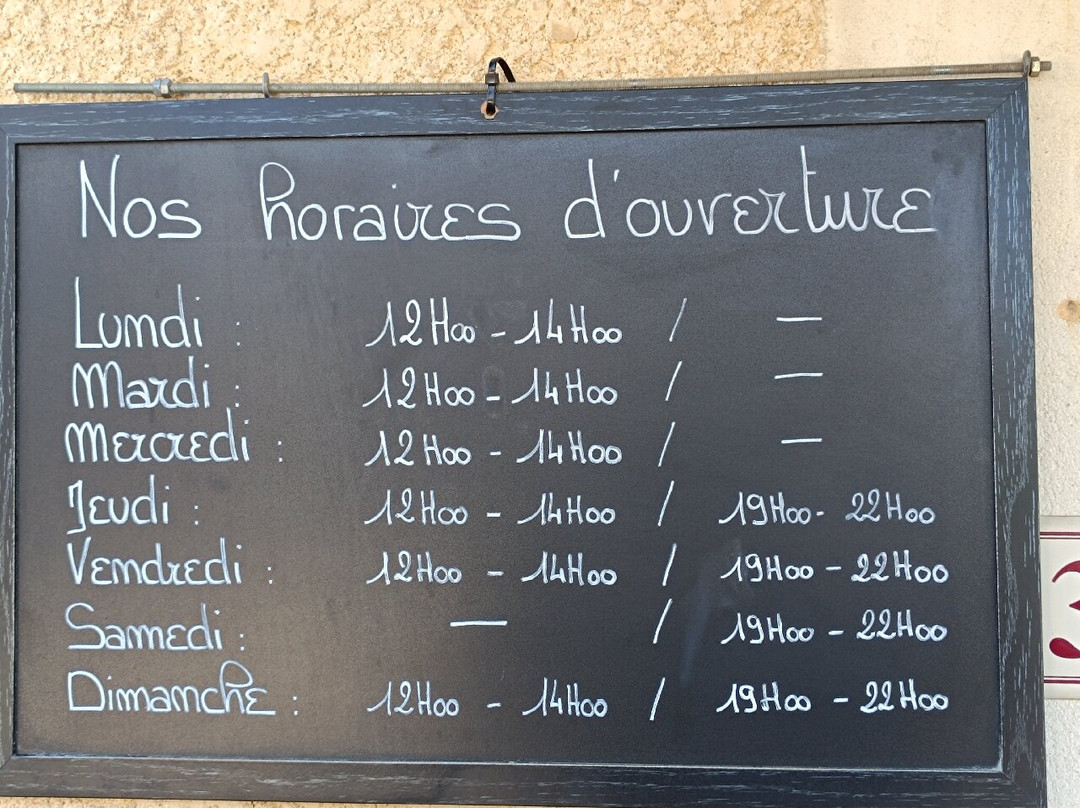 Nos horaires d'ouverture
Lundi : 12H00 - 14H00 / —
Mardi : 12H00 - 14H00 / —
Mercredi : 12H00 - 14H00 / —
Jeudi : 12H00 - 14H00 / 19H00 - 22H00
Vendredi : 12H00 - 14H00 / 19H00 - 22H00
Samedi : — / 19H00 - 22H00
Dimanche : 12H00 - 14H00 / 19H00 - 22H00